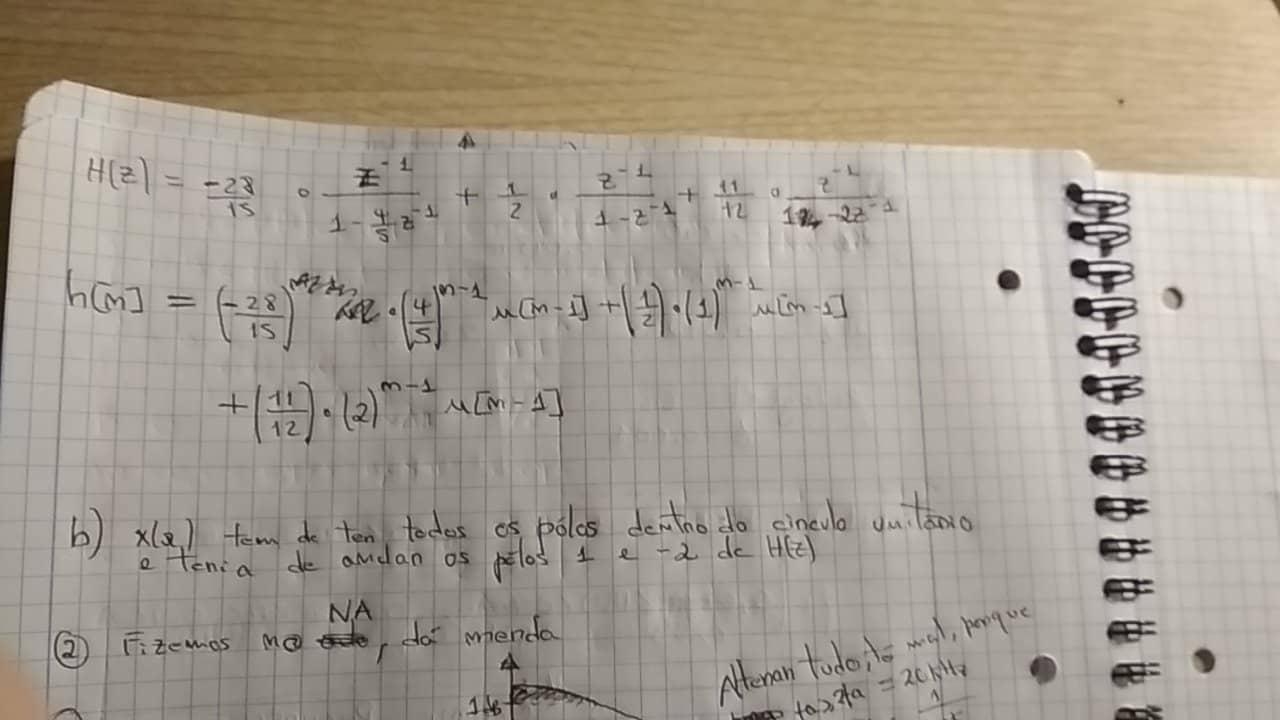 H(z) = -28/15 · z^-1/(1 - 4/5 z^-1) + 1/2 · z^-1/(1 - z^-1) + 11/12 · z^-1/(1 - 2z^-1)
h[n] = (-28/15) · (4/5)^n-1 u[n-1] + (1/2) · (1)^n-1 u[n-1]
+ (11/12) · (2)^n-1 u[n-1]
b) x(z) tem de ter todos os pólos dentro do circulo unitário
e teria de anular os pólos 1 e -2 de H(z)
NA
② Fizemos na, dá merda
Alteran tudo, tá mal, porque
= 20kHz
1